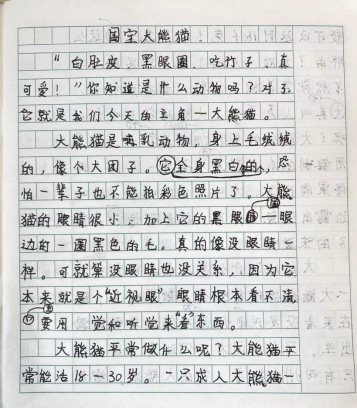 国宝大熊猫
“白肚皮，黑眼圈，吃竹子，真
可爱！”你知道是什么动物吗？对了，
它就是我们今天的主角—大熊猫。
大熊猫是哺乳动物，身上毛绒绒
的，像个大团子。它全身黑白的，恐
怕一辈子也不能拍彩色照片了。大熊
猫的眼睛很小，加上它的黑眼 一眼
边的一圈黑色的毛。真的像没眼睛一
样。可就算没眼睛也没关系，因为它
本来就是个“近视眼”眼睛根本看不清
要用 觉和听觉来“看”东西。
大熊猫平常做什么呢？大熊猫平
常能活18—30岁。一只成人大熊猫一